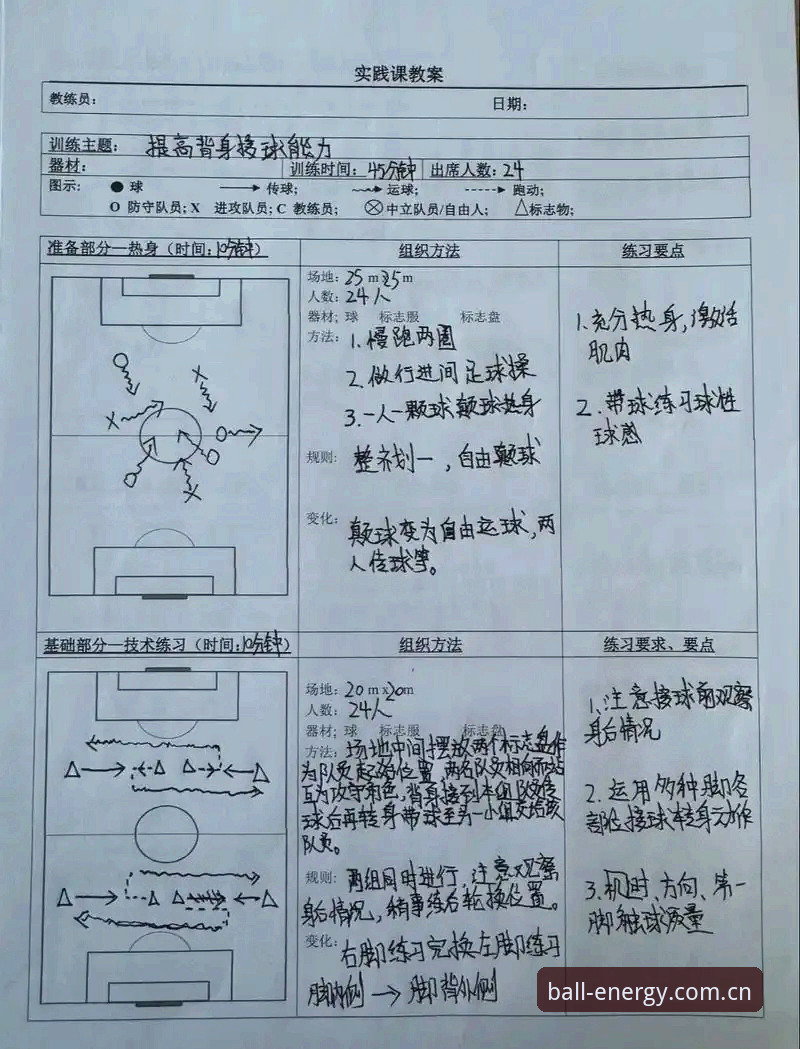 实践课教案
教练员: 日期:
训练主题: 提高背身接球能力
器材: 训练时间: 45分钟 出席人数: 24
图示: ● 球 传球; 运球; 跑动;
O 防守队员; X 进攻队员; C 教练员; 中立队员/自由人; △标志物;
准备部分—热身(时间: 10分钟) 组织方法 练习要点
场地: 25 m 25 m
人数: 24人
器材; 球 标志服 标志盘
方法: 1. 慢跑两圈
2. 做行进间足球操
3. 一人一颗球颠球热身
规则: 整齐划一, 自由颠球
变化: 颠球变为自由运球, 两
人传球等。
1. 充分热身, 激活
肌肉
2. 带球练习球性
球感
基础部分—技术练习(时间: 10分钟) 组织方法 练习要求、要点
场地: 20 m x 20 m
人数: 24人
器材; 球 标志服 标志盘
方法: 场地中间摆放两个标志盘作
为队员起始位置, 两名队员相向而站
互为攻守角色, 背身接到本组队员传
球后再转身带球至另一小组交给该
队员。
规则: 两组同时进行, 注意观察
身后情况, 稍事练后轮换位置。
变化: 右脚练习完换左脚练习
脚内侧 → 脚背外侧
1. 注意接球前观察
身后情况
2. 运用多种脚各
部位接球转身动作
3. 时、方向、第一
脚触球质量
ball-energy.com.cn